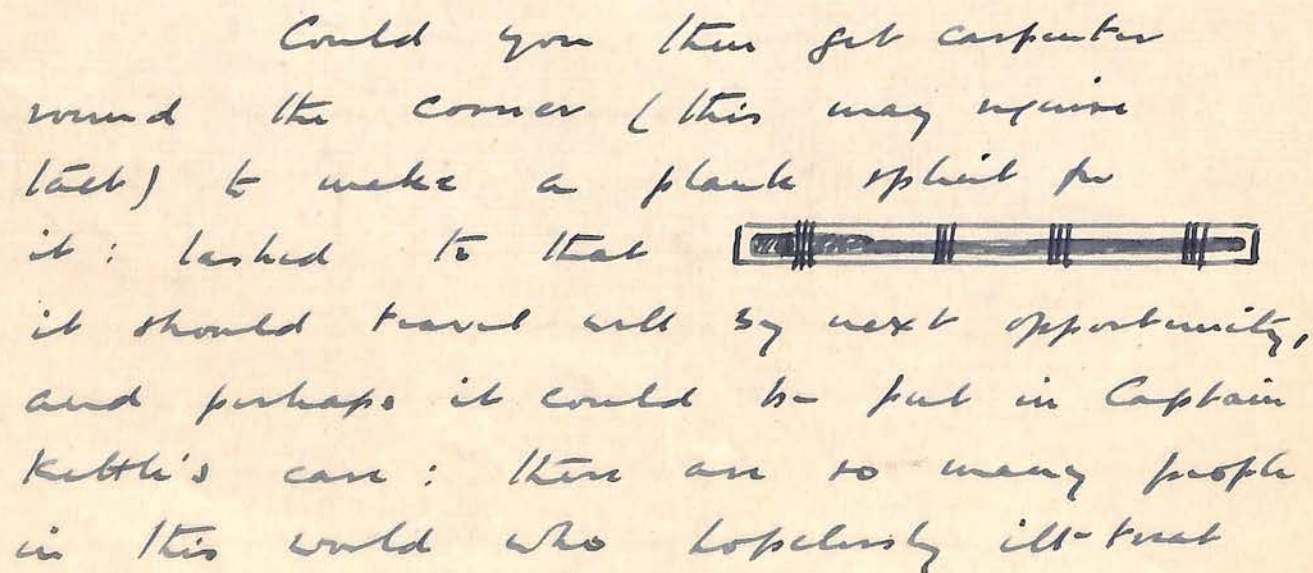 Could you then get carpenter
round the corner (this may require
tact) to make a plank splint for
it : lashed to that
it should travel well by next opportunity,
and perhaps it could be put in Captain
Kettle's care : there are so many people
in this world who hopelessly ill-treat